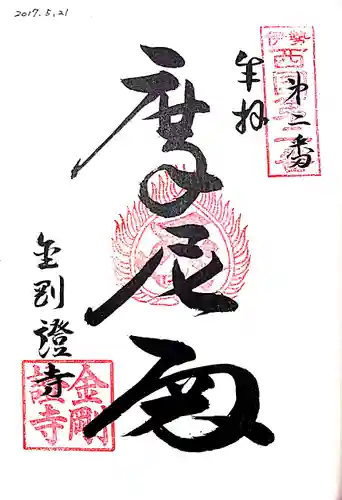 2017.5.21
伊勢
西国三
第二番
奉拝
摩尼殿
金剛證寺
金剛
證寺